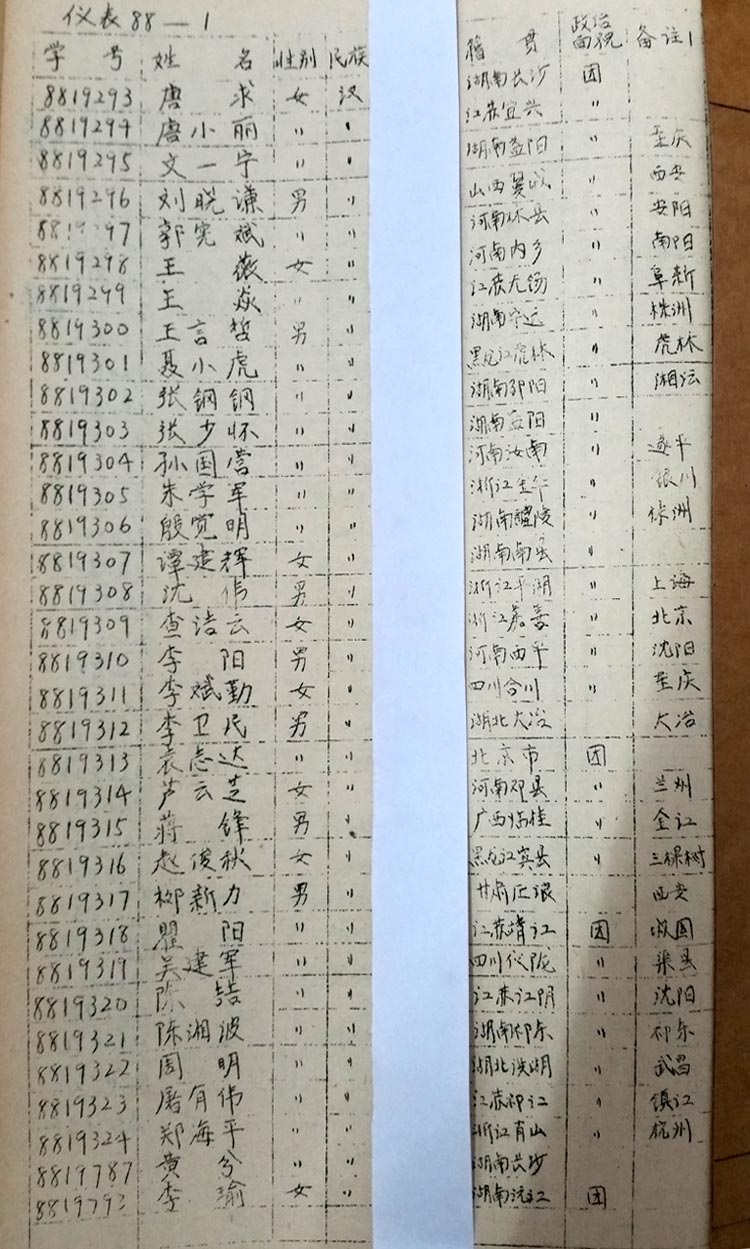 仪表88—1
学号 姓名 性别 民族 籍贯 政治面貌 备注
8819293 唐求 女 汉 湖南长沙 团
8819294 唐小丽 〃 〃 江苏宜兴 〃
8819295 文一宁 〃 〃 湖南益阳 〃 重庆
8819296 刘晓谦 男 〃 山西翼城 〃 西安
8819297 郭宪斌 〃 〃 河南林县 〃 安阳
8819298 王薇 女 〃 河南内乡 〃 南阳
8819299 王焱 〃 〃 江苏无锡 〃 阜新
8819300 王言哲 男 〃 湖南宁远 〃 株洲
8819301 聂小虎 〃 〃 黑龙江虎林 〃 虎林
8819302 张钢钢 〃 〃 湖南邵阳 〃 湘沄
8819303 张少怀 〃 〃 湖南益阳 〃
8819304 孙国营 〃 〃 河南汝南 〃 遂平
8819305 朱学军 〃 〃 浙江金华 〃 银川
8819306 殷宽明 〃 〃 湖南醴陵 〃 株洲
8819307 谭建辉 女 〃 湖南南县 〃
8819308 沈伟 男 〃 浙江平湖 〃 上海
8819309 查洁云 女 〃 浙江嘉善 〃 北京
8819310 李阳 男 〃 河南西平 〃 沈阳
8819311 李斌勤 女 〃 四川合川 〃 重庆
8819312 李卫民 男 〃 湖北大冶 大冶
8819313 袁志达 〃 〃 北京市 团
8819314 芦云芝 女 〃 河南邓县 〃 兰州
8819315 蒋锋 男 〃 广西临桂 〃 全江
8819316 赵俊秋 女 〃 黑龙江宾县 〃 三棵树
8819317 柳新力 男 〃 甘肃庄浪 西安
8819318 瞿阳 〃 〃 江苏靖江 团
8819319 吴建军 〃 〃 四川仪陇 〃 渠县
8819320 陈喆 〃 〃 江苏江阴 〃 沈阳
8819321 陈湘波 〃 〃 湖南祁东 〃 祁东
8819322 周明 〃 〃 湖北洪湖 〃 武昌
8819323 屠有伟 〃 〃 江苏邗江 〃 镇江
8819324 郑海平 〃 〃 浙江肖山 〃 杭州
8819787 黄兮 〃 〃 湖南长沙
8819793 李瑜 女 〃 湖南沅江 团